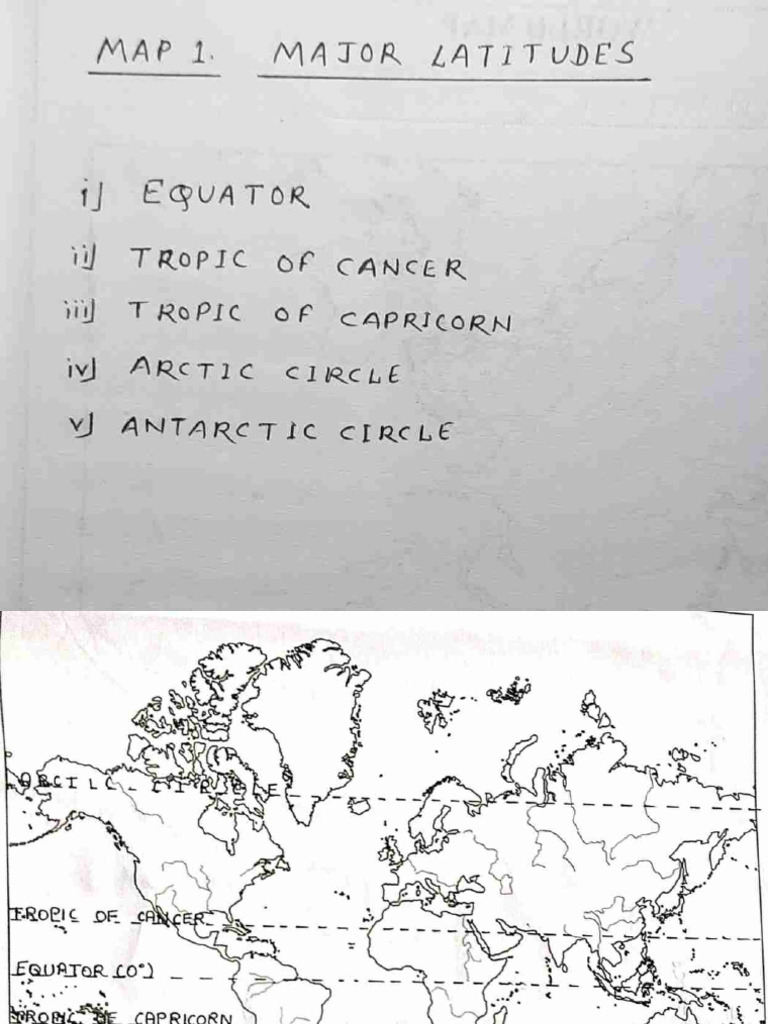 MAP 1. MAJOR LATITUDES
i) EQUATOR
ii) TROPIC OF CANCER
iii) TROPIC OF CAPRICORN
iv) ARCTIC CIRCLE
v) ANTARCTIC CIRCLE
ARCTIC CIRCLE
TROPIC OF CANCER
EQUATOR (0°)
TROPIC OF CAPRICORN